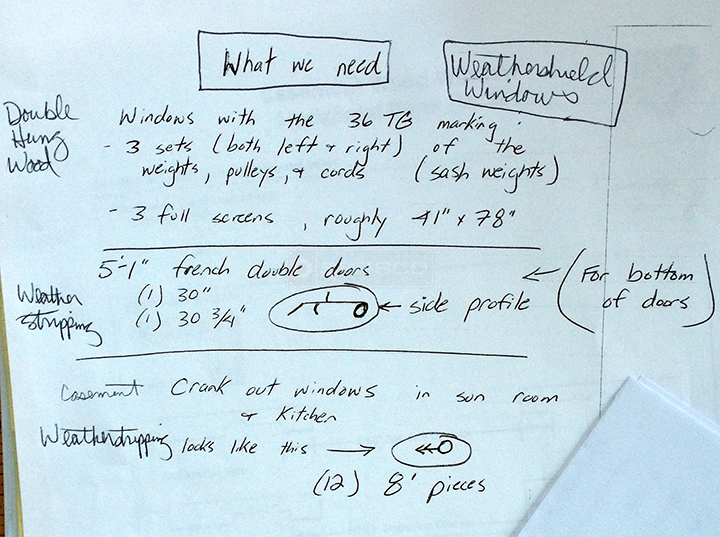 What we need
Weathershield
Windows
Double
Hung
Wood
Windows with the 36 TG marking:
- 3 sets (both left + right) of the
weights, pulleys, + cords (sash weights)
- 3 full screens, roughly 41" x 78"
5'-1" french double doors
(For bottom
of doors)
Weather
Stripping
(1) 30"
(1) 30 3/4"
← side profile
Casement Crank out windows in sun room
+ Kitchen
Weatherstripping looks like this →
(12) 8' pieces